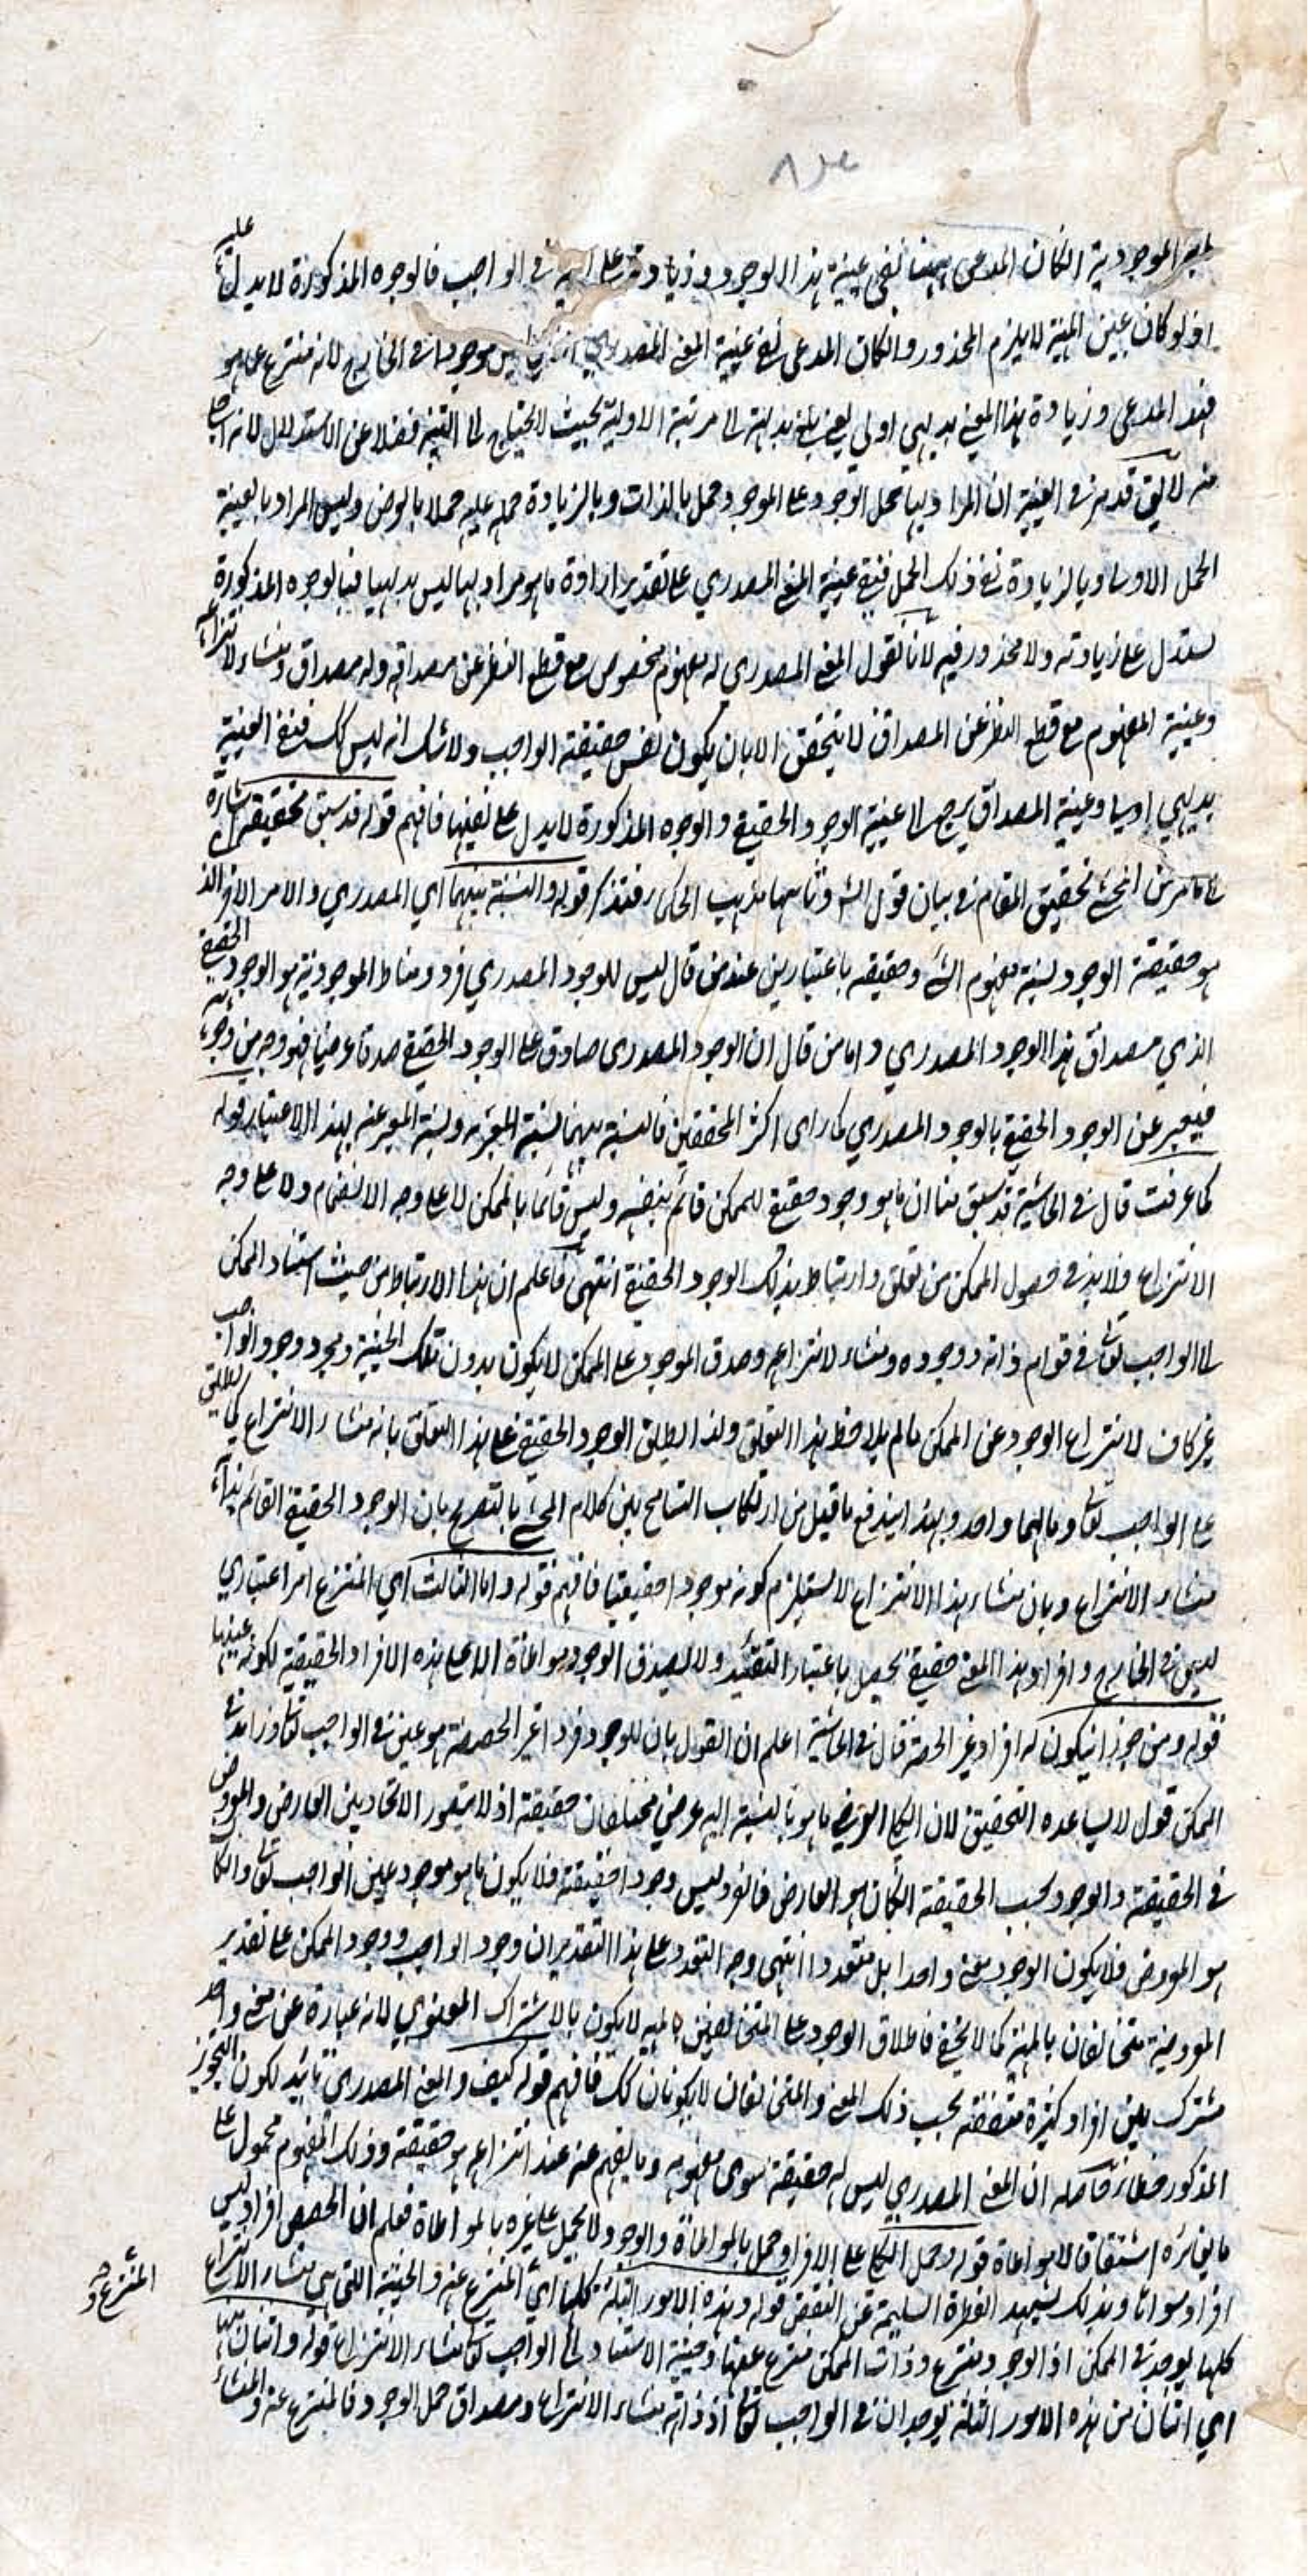 الموجودية ان كان المدعى ههنا نفي عينية هذا الوجود وزيادته على في الواجب فالوجوه المذكورة لا يدل عليه
اذ لو كان عين المهية لا يلزم المحذور وان كان المدعى نفي عينية المعنى المصدري موجودا في الخارج لانه منتزع عما هو
فهذا المدعى وزيادة هذا المعنى بديهي اولي يعني بلغ بداهته الى مرتبة الاولية بحيث لا يحتاج الى التنبيه فضلا عن الاستدلال لانه
منه لا يق قد مر في العينية ان المراد بها حمل الوجود على الموجود حمل بالذات وبالزيادة حمله عليه حملا بالعرض وليس المراد بالعينية
الحمل الاولى وبالزيادة نفي ذلك الحمل فنفي عينية المعنى المصدري على تقدير ارادة ما هو مراد بها ليس بديهيا فبالوجوه المذكورة
يستدل على زيادته ولا محذور فيه لانا نقول المعنى المصدري له مفهوم مخصوص مع قطع النظر عن مصداقه وله مصداق ومنشاء لانتزاعه
وعينية المفهوم مع قطع النظر عن المصداق لا يتحقق الا بان يكون نفس حقيقة الواجب ولا شك انه ليس كك فنفي العينية
بديهي اولى وعينية المصداق يرجع الى عينية الوجود الحقيقي والوجوه المذكورة لا يدل على نفيها فافهم قوله قد سبق تحقيقه اشارة
الى ما مر من المحشي تحقيق المقام في بيان قول الش وثانيهما مذهب الحكماء فتذكر قوله والنسبة بينهما اي المصدري والامر الاخر الذ
هو حقيقة الوجود نسبة مفهوم الشئ وحقيقته باعتبارين عند من قال ليس للوجود المصدري فرد ومناط الموجودية هو الوجود الحقيقي
الذي مصداق هذا الوجود المصدري واما من قال ان الوجود المصدري صادق على الوجود الحقيقي صدقا عرضيا فهو وجه من وجوهه
فيعبر عن الوجود الحقيقي بالوجود المصدري كما راى اكثر المحققين فالنسبة بينهما نسبة المعبر به ونسبة المعبر عنه بهذا الاعتبار قوله
كما عرفت قال في الحاشية قد سبق منا ان ما هو وجود حقيقي للممكن قائم بنفسه وليس قائما بالممكن لا على وجه الانضمام ولا على وجه
الانتزاع فلا بد في حصول الممكن من تعلق وارتباط بذلك الوجود الحقيقي انتهى فاعلم ان هذا الارتباط من حيث استناد الممكن
الى الواجب تعالى في قوام ذاته ووجوده ومنشاء لانتزاعه وصدق الموجود على الممكن لا يكون بدون تلك الحيثية ومجرد وجود الواجب
غير كاف لانتزاع الوجود عن الممكن ما لم يلاحظ هذا التعلق ولذا يطلق الوجود الحقيقي على هذا التعلق بانه منشاء الانتزاع كما يطلق
على الواجب تعالى ومالهما واحد وبهذا يندفع ما قيل من ارتكاب التسامح بين كلام المحشي بالتصريح بان الوجود الحقيقي القائم بذاته
منشاء الانتزاع وبان منشاء هذا الانتزاع لا يستلزم كونه موجودا حقيقيا فافهم قوله واما الثالث اي المنتزع امر اعتباري
ليس في الخارج وافراد هذا المعنى حقيقي يحصل باعتبار التقييد ولا يصدق الوجود مواطاة الا على هذه الافراد الحقيقية لكونه عينها
قوله ومن جوز ان يكون له افراد غير الحصة قال في الحاشية اعلم ان القول بان للوجود فردا غير الحصة هو عين في الواجب تعالى وزائد في
الممكن قول لا يساعده التحقيق لان الكلي العرضي ما هو بالنسبة اليه عرضي مختلفان حقيقة اذ لا يتصور الاتحاد بين العارض والمعروض
في الحقيقة والوجود بحسب الحقيقة ان كان هو العارض فالفرد ليس وجودا حقيقة فلا يكون ما هو موجود عين الواجب تعالى وان كان
هو المعروض فلا يكون الوجود معنى واحدا بل متعددا انتهى وجه التعدد على هذا التقدير ان وجود الواجب ووجود الممكن على تقدير
المعروضية متخالفان بالمهية كما لا يخفى فاطلاق الوجود على المتخالفين بالمهية لا يكون بالاشتراك المعنوي لانه عبارة عن معنى واحد
مشترك بين افراد كثيرة متفقة بحسب ذلك المعنى والمتخالفان لا يكونان كك فافهم قوله كيف والمعنى المصدري تائيد لكون التجويز
المذكور خطاء حاصله ان المعنى المصدري ليس له حقيقة سوى مفهومه وما يفهم عنه عند انتزاعه هو حقيقة وذلك المفهوم محمول على
ما يغائره اشتقاقا لا مواطاة قوله وحمل الكلي على الافراد حمل بالمواطاة والوجود لا يحمل على غيره بالمواطاة فعلم ان الحصص افراد ليس
افراد سواها وبذلك يشهد الفطرة السليمة عن النقض قوله وهذه الامور الثلثة كلها اي المنتزع عنه والحيثية التي هي منشاء الانتزاع
المنتزع و
كلها يوجد في الممكن اذ الوجود منتزع وذات الممكن منتزع عنها وحيثية الاستناد الى الواجب تعالى منشاء الانتزاع قوله واثنان منها
اي اثنان من هذه الامور الثلثة يوجدان في الواجب تعالى اذ ذاته منشاء الانتزاع ومصداق حمل الوجود فالمنتزع عنه والمنشاء